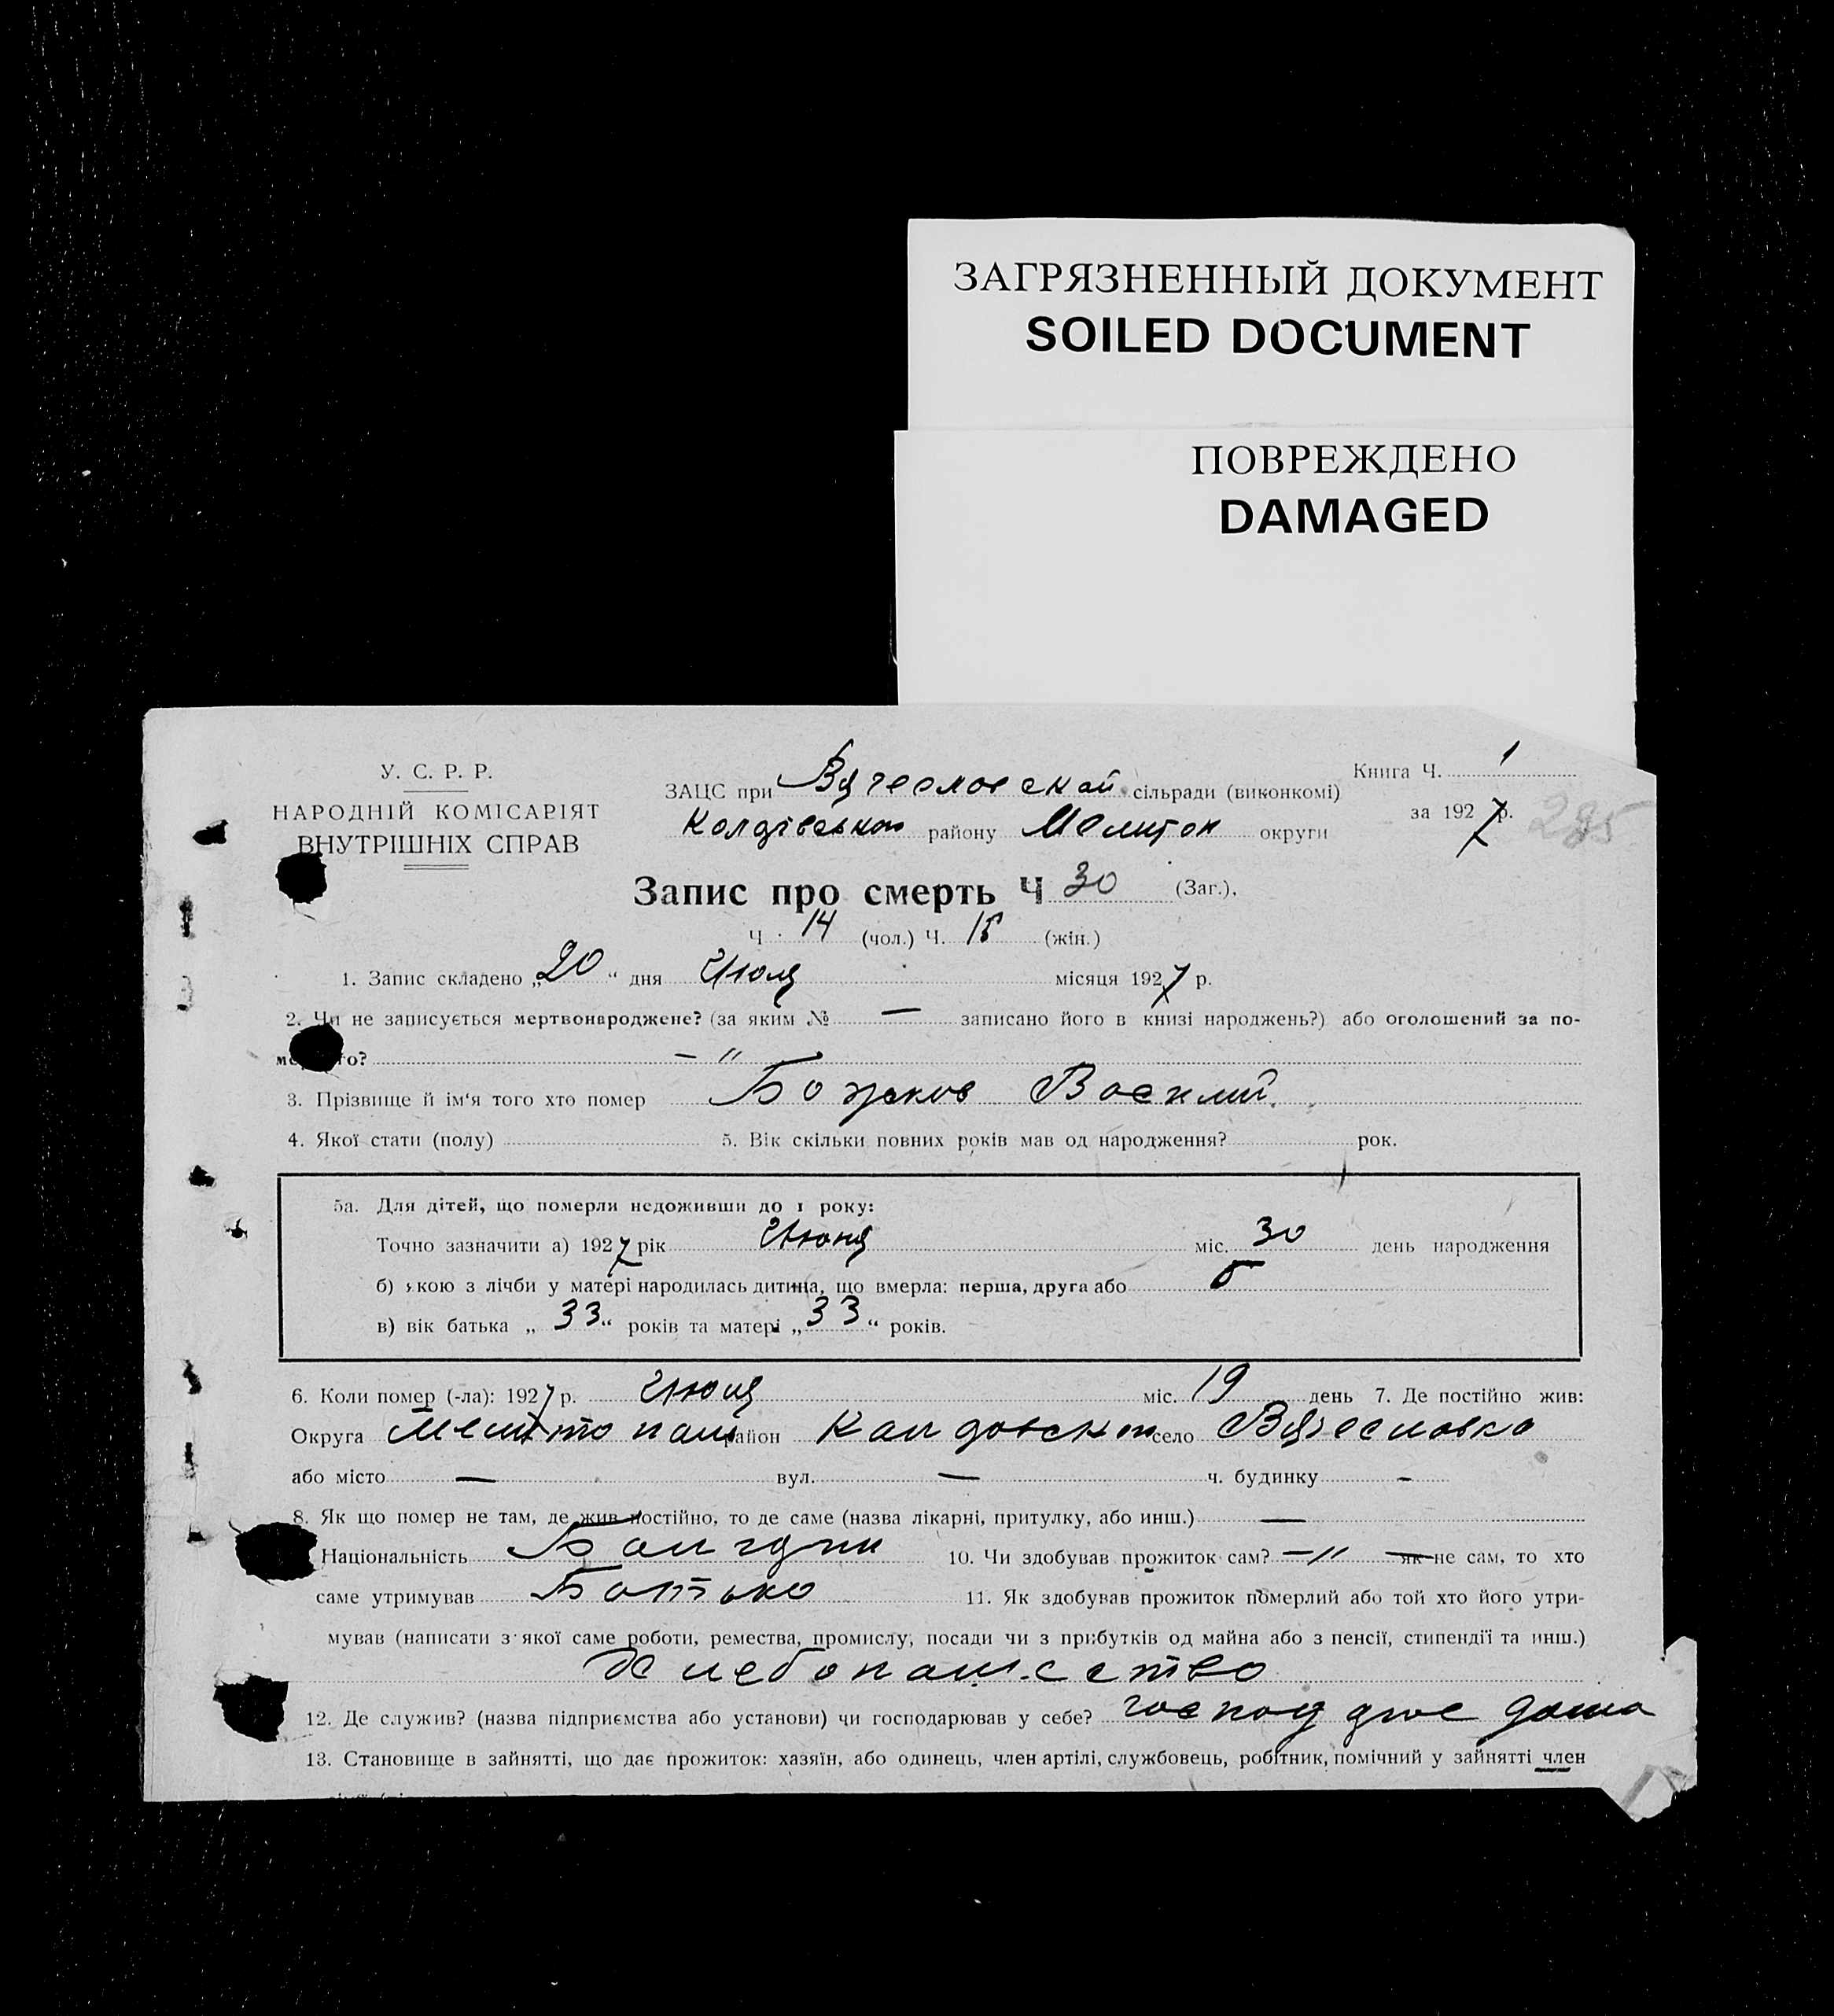 ЗАГРЯЗНЕННЫЙ ДОКУМЕНТ
SOILED DOCUMENT
ПОВРЕЖДЕНО
DAMAGED
У. С. Р. Р.
НАРОДНІЙ КОМІСАРІЯТ
ВНУТРІШНІХ СПРАВ
ЗАЦС при Вячесловской сільради (виконкомі)
району Мелитоп округи
Книга Ч. 1
за 1927 р. 285
Запис про смерть Ч 30 (Заг.),
Ч 14 (чол.) Ч. 15 (жін.)
1. Запис складено „20“ дня Июля місяця 1927 р.
2. Чи не записується мертвонароджене? (за яким № — записано його в книзі народжень?) або оголошений за по-
го? — "
3. Прізвище й ім‘я того хто помер Божков Василий.
4. Якої стати (полу) 5. Вік скільки повних років мав од народження? рок.
5а. Для дітей, що померли недоживши до 1 року:
Точно зазначити а) 1927 рік Июня міс. 30 день народження
б) якою з лічби у матері народилась дитина, що вмерла: перша, друга або 5
в) вік батька „33“ років та матері „33“ років.
6. Коли помер (-ла): 1927 р. Июля міс. 19 день 7. Де постійно жив:
Округа Мелитопол район село Вячесловка
або місто — вул. — ч. будинку -
8. Як що помер не там, де жив постійно, то де саме (назва лікарні, притулку, або инш.) —
Національність Болгарин 10. Чи здобував прожиток сам? — " — як не сам, то хто
саме утримував Батько 11. Як здобував прожиток померлий або той хто його утри-
мував (написати з якої саме роботи, ремества, промислу, посади чи з прибутків од майна або з пенсії, стипендії та инш.)
Хлебопашество
12. Де служив? (назва підприємства або установи) чи господарював у себе? дома
13. Становище в зайнятті, що дає прожиток: хазяїн, або одинець, член артілі, службовець, робітник, помічний у зайнятті член